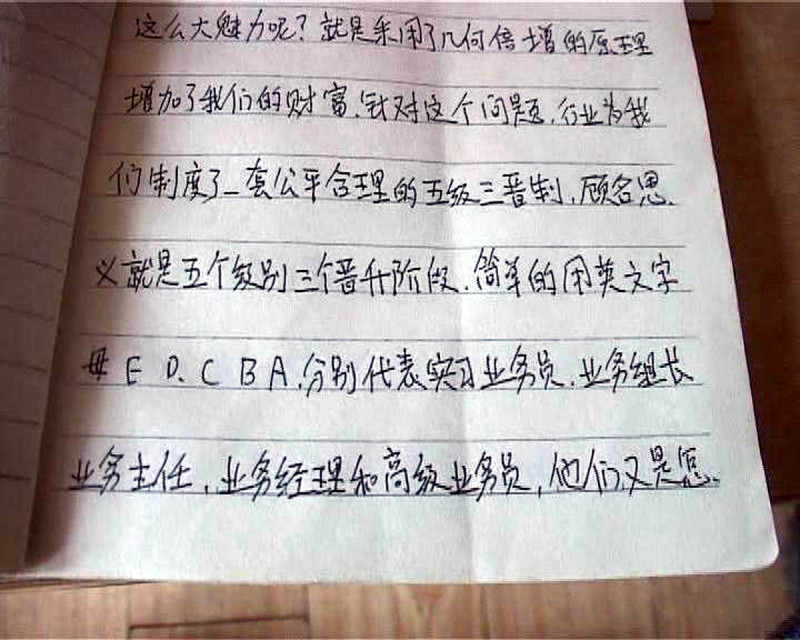 这么大魅力呢？就是采用了几何倍增的原理
增加了我们的财富.针对这个问题.行业为我
们制度了一套公平合理的五级三晋制.顾名思.
义就是五个级别三个晋升阶段.简单的用英文字
母E D.C B A.分别代表实习业务员.业务组长
业务主任.业务经理和高级业务员,他们又是怎.